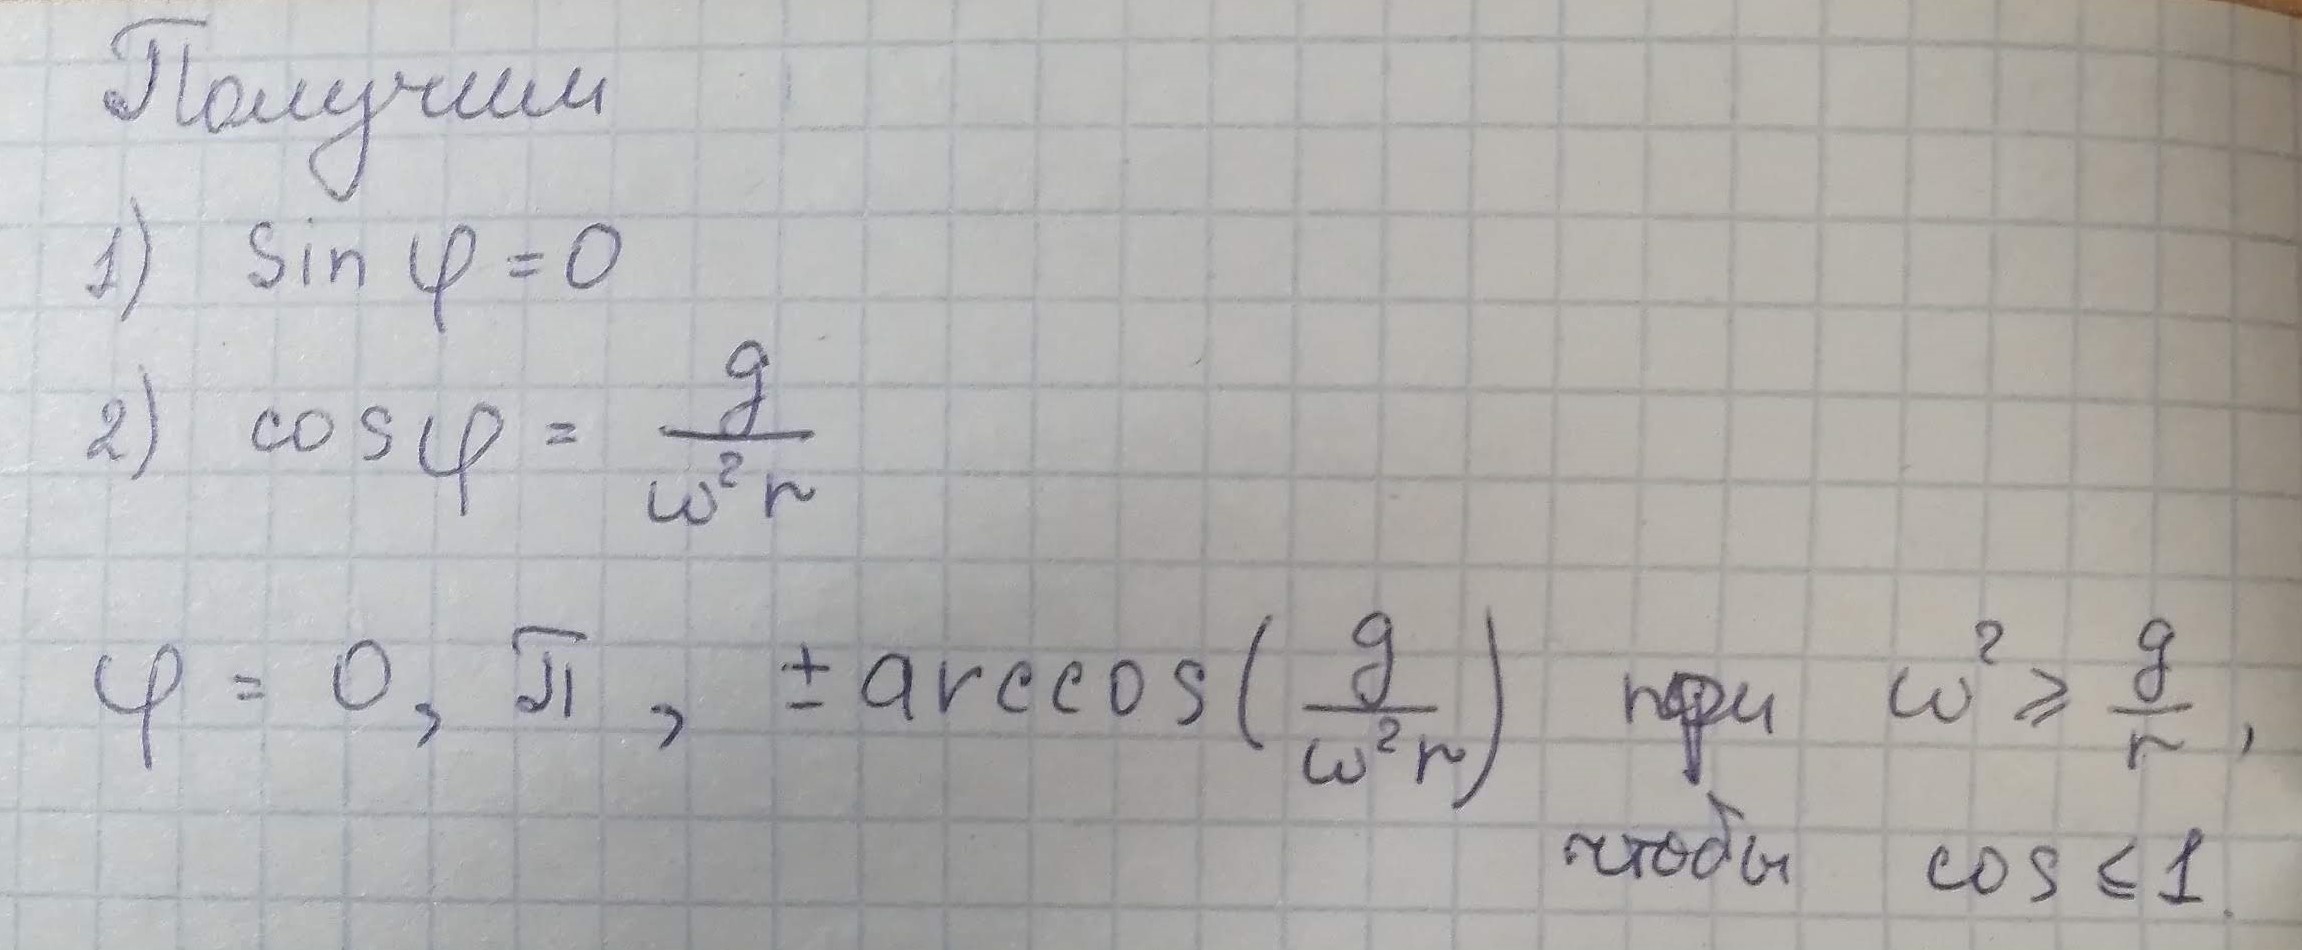 Получим
1) sin φ = 0
2) cos φ = g / ω² r
φ = 0, π, ± arccos ( g / ω² r ) при ω² ⩾ g / r ,
чтобы cos ⩽ 1.